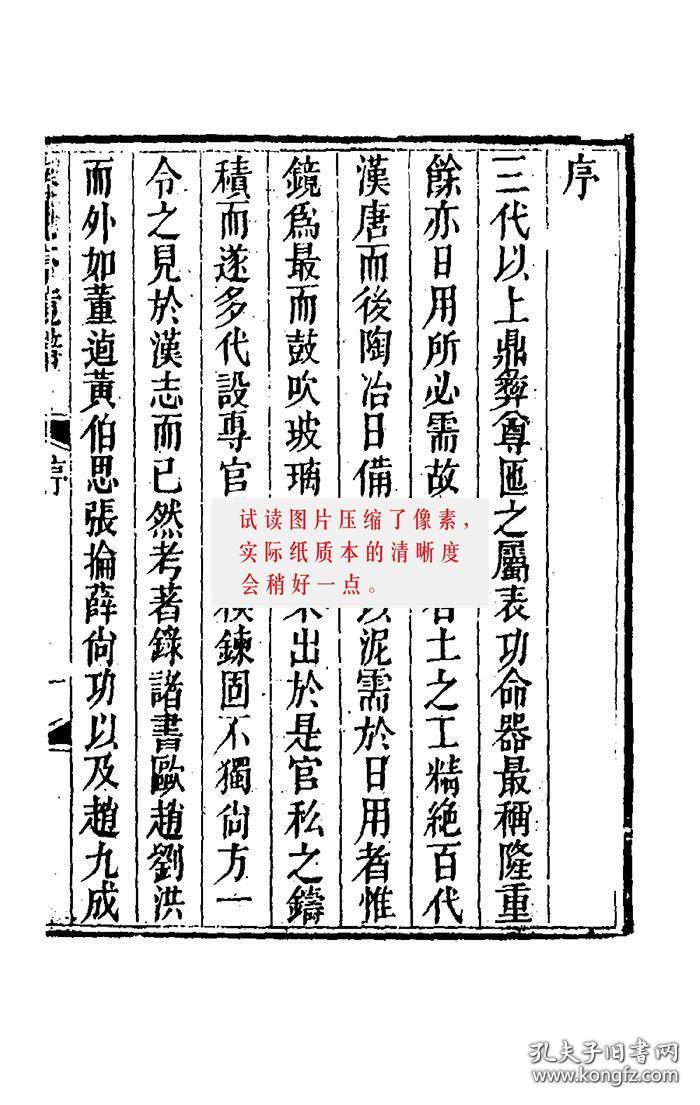 序
三代以上鼎彝尊匜之屬表功命器最稱隆重
餘亦日用所必需故土之工精絶百代
漢唐而後陶冶日備泥需於日用者惟
鏡爲最而鼓吹玻瓈出於是官私之鑄
積而遂多代設專官鍊固不獨尙方一
令之見於漢志而已然考著錄諸書歐趙劉洪
而外如董逌黃伯思張掄薛尙功以及趙九成
序
试读图片压缩了像素，
实际纸质本的清晰度
会稍好一点。
孔夫子旧书网
www.kongfz.com